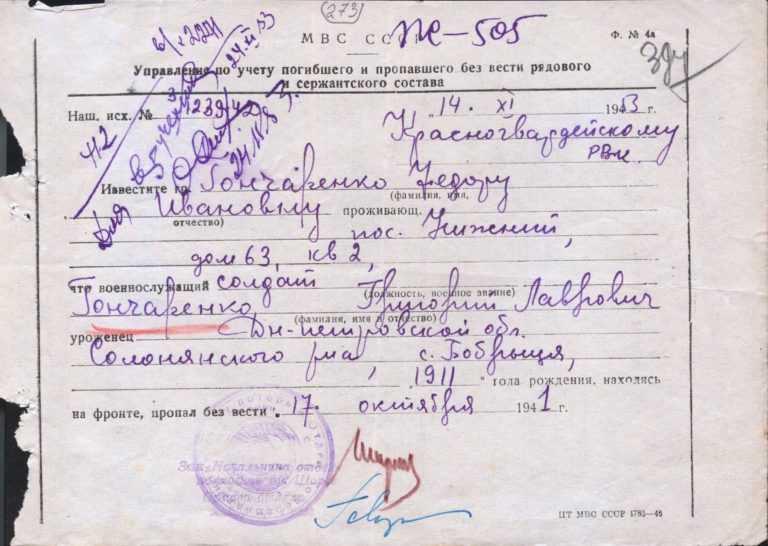 273
МВС СССР ПС-505
Ф. № 4а
Управление по учету погибшего и пропавшего без вести рядового
и сержантского состава
Наш. исх. № 3/23942
"14." XI 1953 г.
Красногвардейскому
РВК
412
24.XI.53
Известите гр. Гончаренко Федору
(фамилия, имя,
Ивановичу проживающ.
отчество)
пос. Нижний,
дом 63, кв 2,
что военнослужащий солдат
(должность, военное звание)
Гончаренко Григорий Лаврович
(фамилия, имя и отчество)
уроженец Дн-петровской обл.
Солонянского р-на с. Бобрыця,
, 1911 " года рождения, находясь
на фронте, пропал без вести "17. октября 1941 г.
Зам. Начальника отдела
ЦТ МВС СССР 1785—46